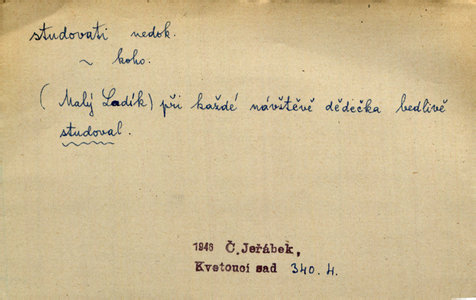 studovati nedok.
~ koho.
(Malý Ladík) při každé návštěvě dědečka bedlivě
studoval.
1946 Č. Jeřábek,
Kvetoucí sad 340. 4.